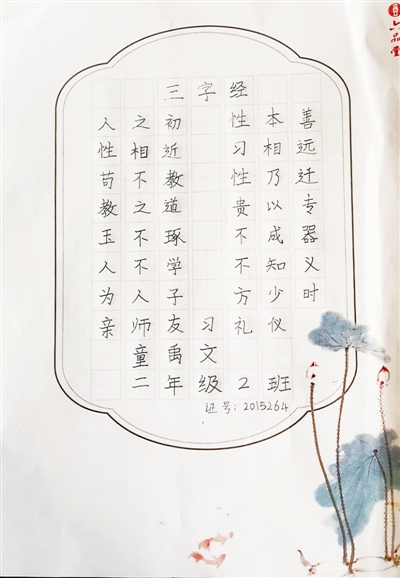 三字经
人之初 性本善
性相近 习相远
苟不教 性乃迁
教之道 贵以专
玉不琢 不成器
人不学 不知义
为人子 方少时
亲师友 习礼仪
童禹文
二年级2班
证号：2015264
六品堂